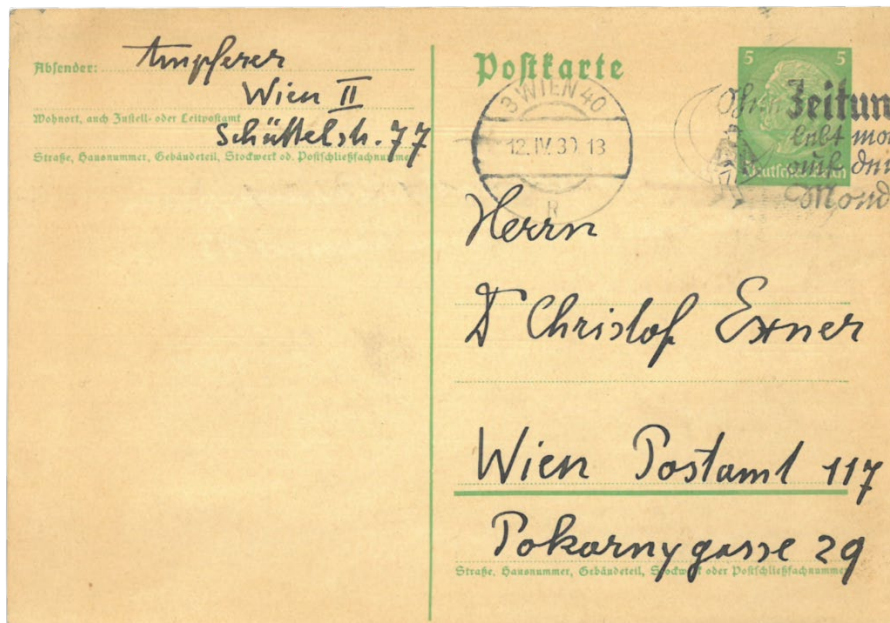 Absender: Ampferer
Wien II
Wohnort, auch Zustell- oder Leitpostamt
Schüttelstr. 77
Straße, Hausnummer, Gebäudeteil, Stockwerk od. Postschließfachnummer
Postkarte
5 5
3 WIEN 40
12.IV.39 13
R
Ohne Zeitun
lebt man
auf dem
Mond
Deutsches Reich
Herrn
Dr Christof Exner
Wien Postamt 117
Pokornygasse 29
Straße, Hausnummer, Gebäudeteil, Stockwerk oder Postschließfachnummer